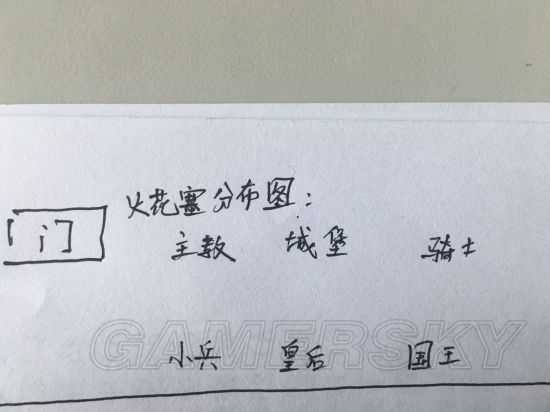 火花塞分布图:
门
主教 城堡 骑士
小兵 皇后 国王
GAMERSKY